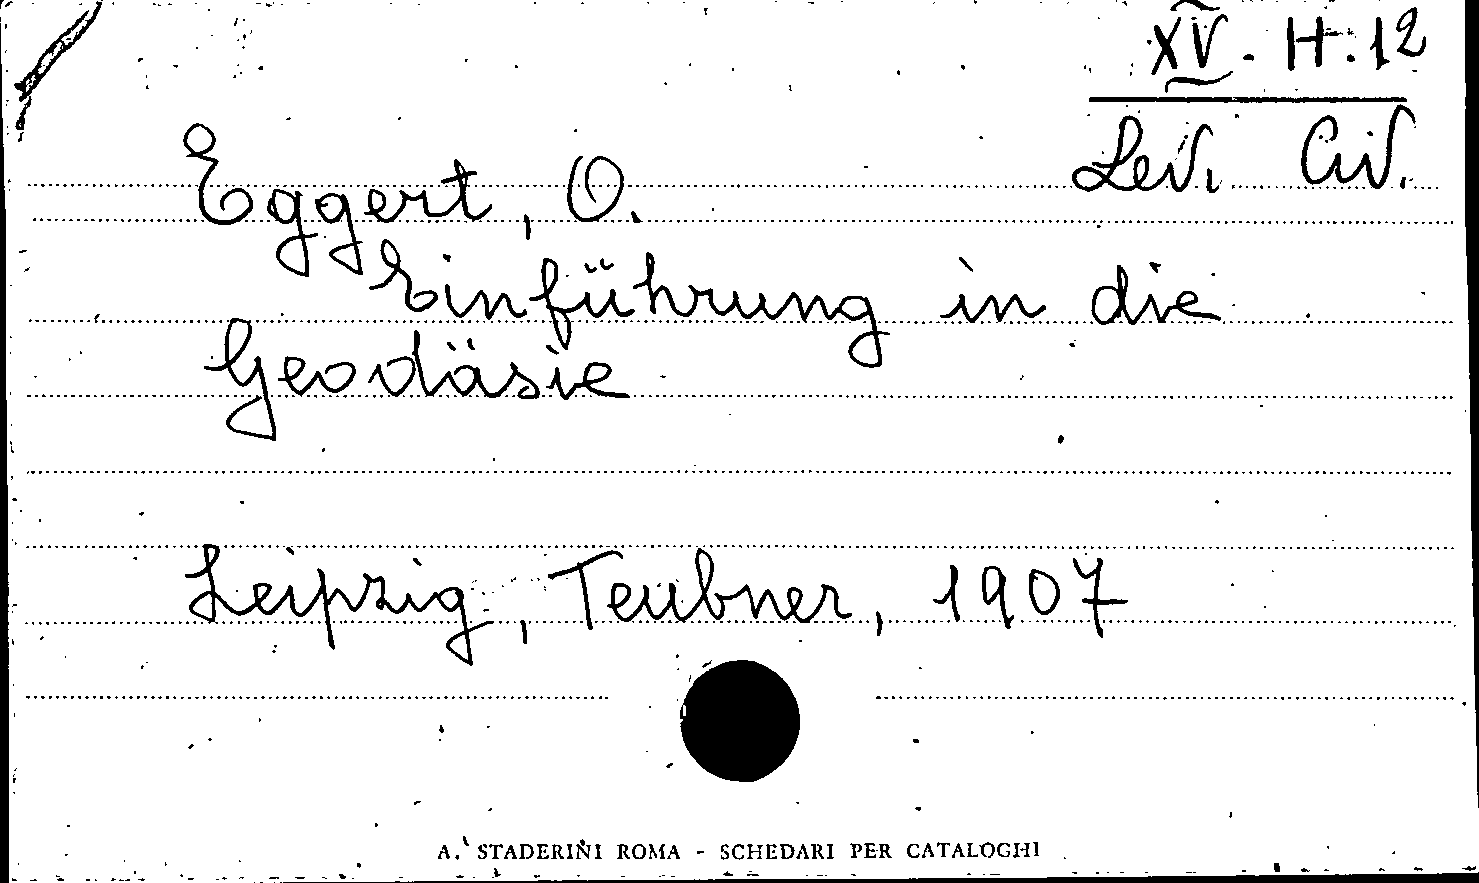 XV. H. 12
Lev. Civ.
Eggert, O.
Einführung in die
Geodäsie
Leipzig, Teubner, 1907
A. STADERINI ROMA - SCHEDARI PER CATALOGHI